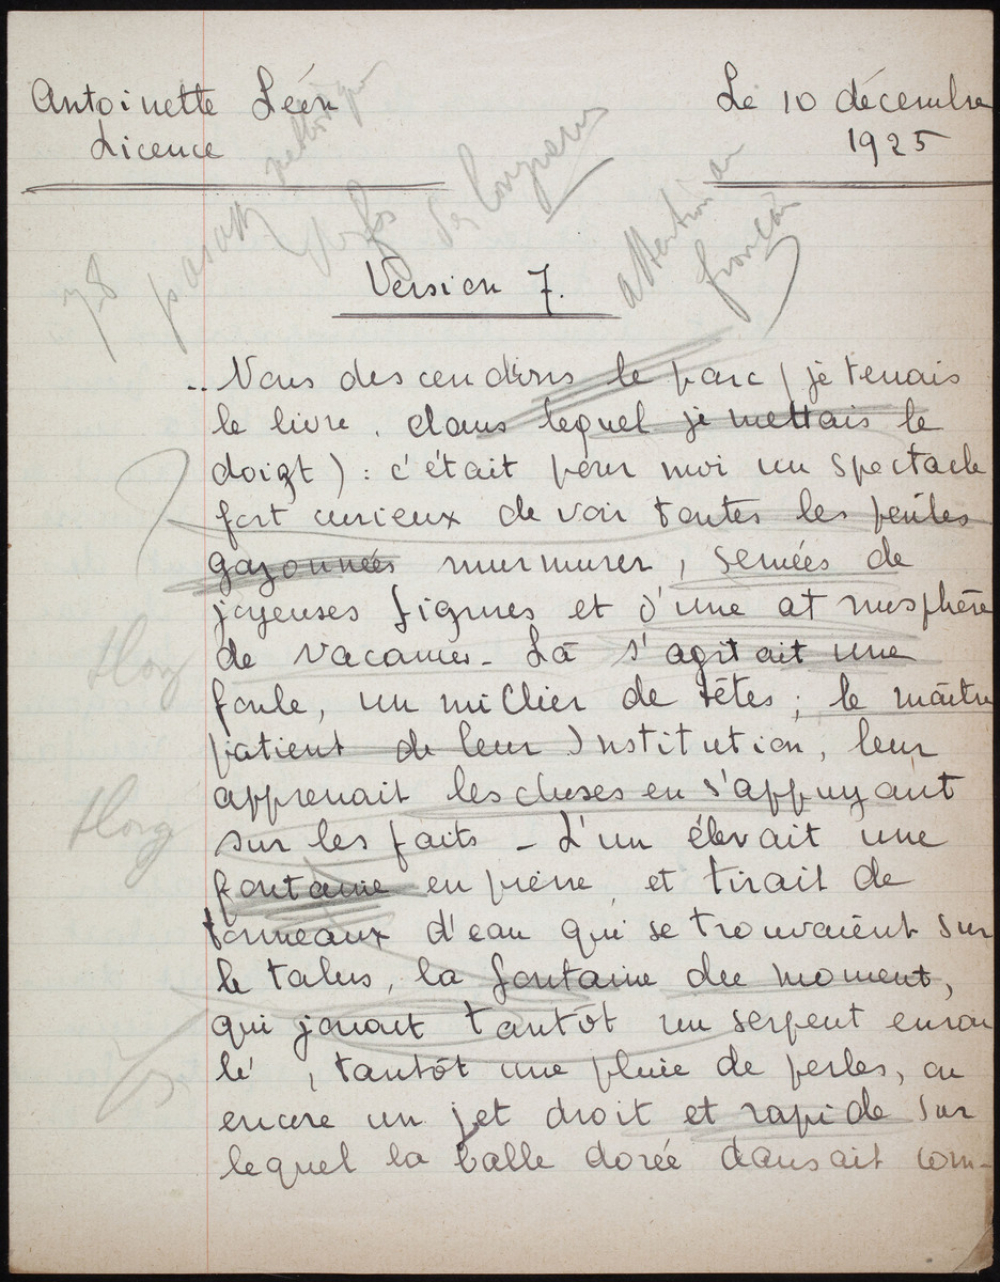 Antoinette Léon
Le 10 décembre
Licence
1925
attention au
français
Version 7.
.. Nous descendions le parc ( je tenais
le livre, dans lequel je mettais le
doigt ) : c'était pour moi un spectacle
fort curieux de voir toutes les pentes
gazonnées murmurer, semées de
joyeuses figures et d'une atmosphère
de vacances - Là s'agitait une
foule, un millier de têtes ; le maître
patient de leur Institution, leur
apprenait les choses en s'appuyant
sur les faits - L'un élevait une
fontaine en pierre et tirait de
tonneaux d'eau qui se trouvaient sur
le talus, la fontaine du moment,
qui jouait tantôt un serpent enrou
lé, tantôt une pluie de perles, ou
encore un jet droit et rapide sur
lequel la balle dorée dansait com-